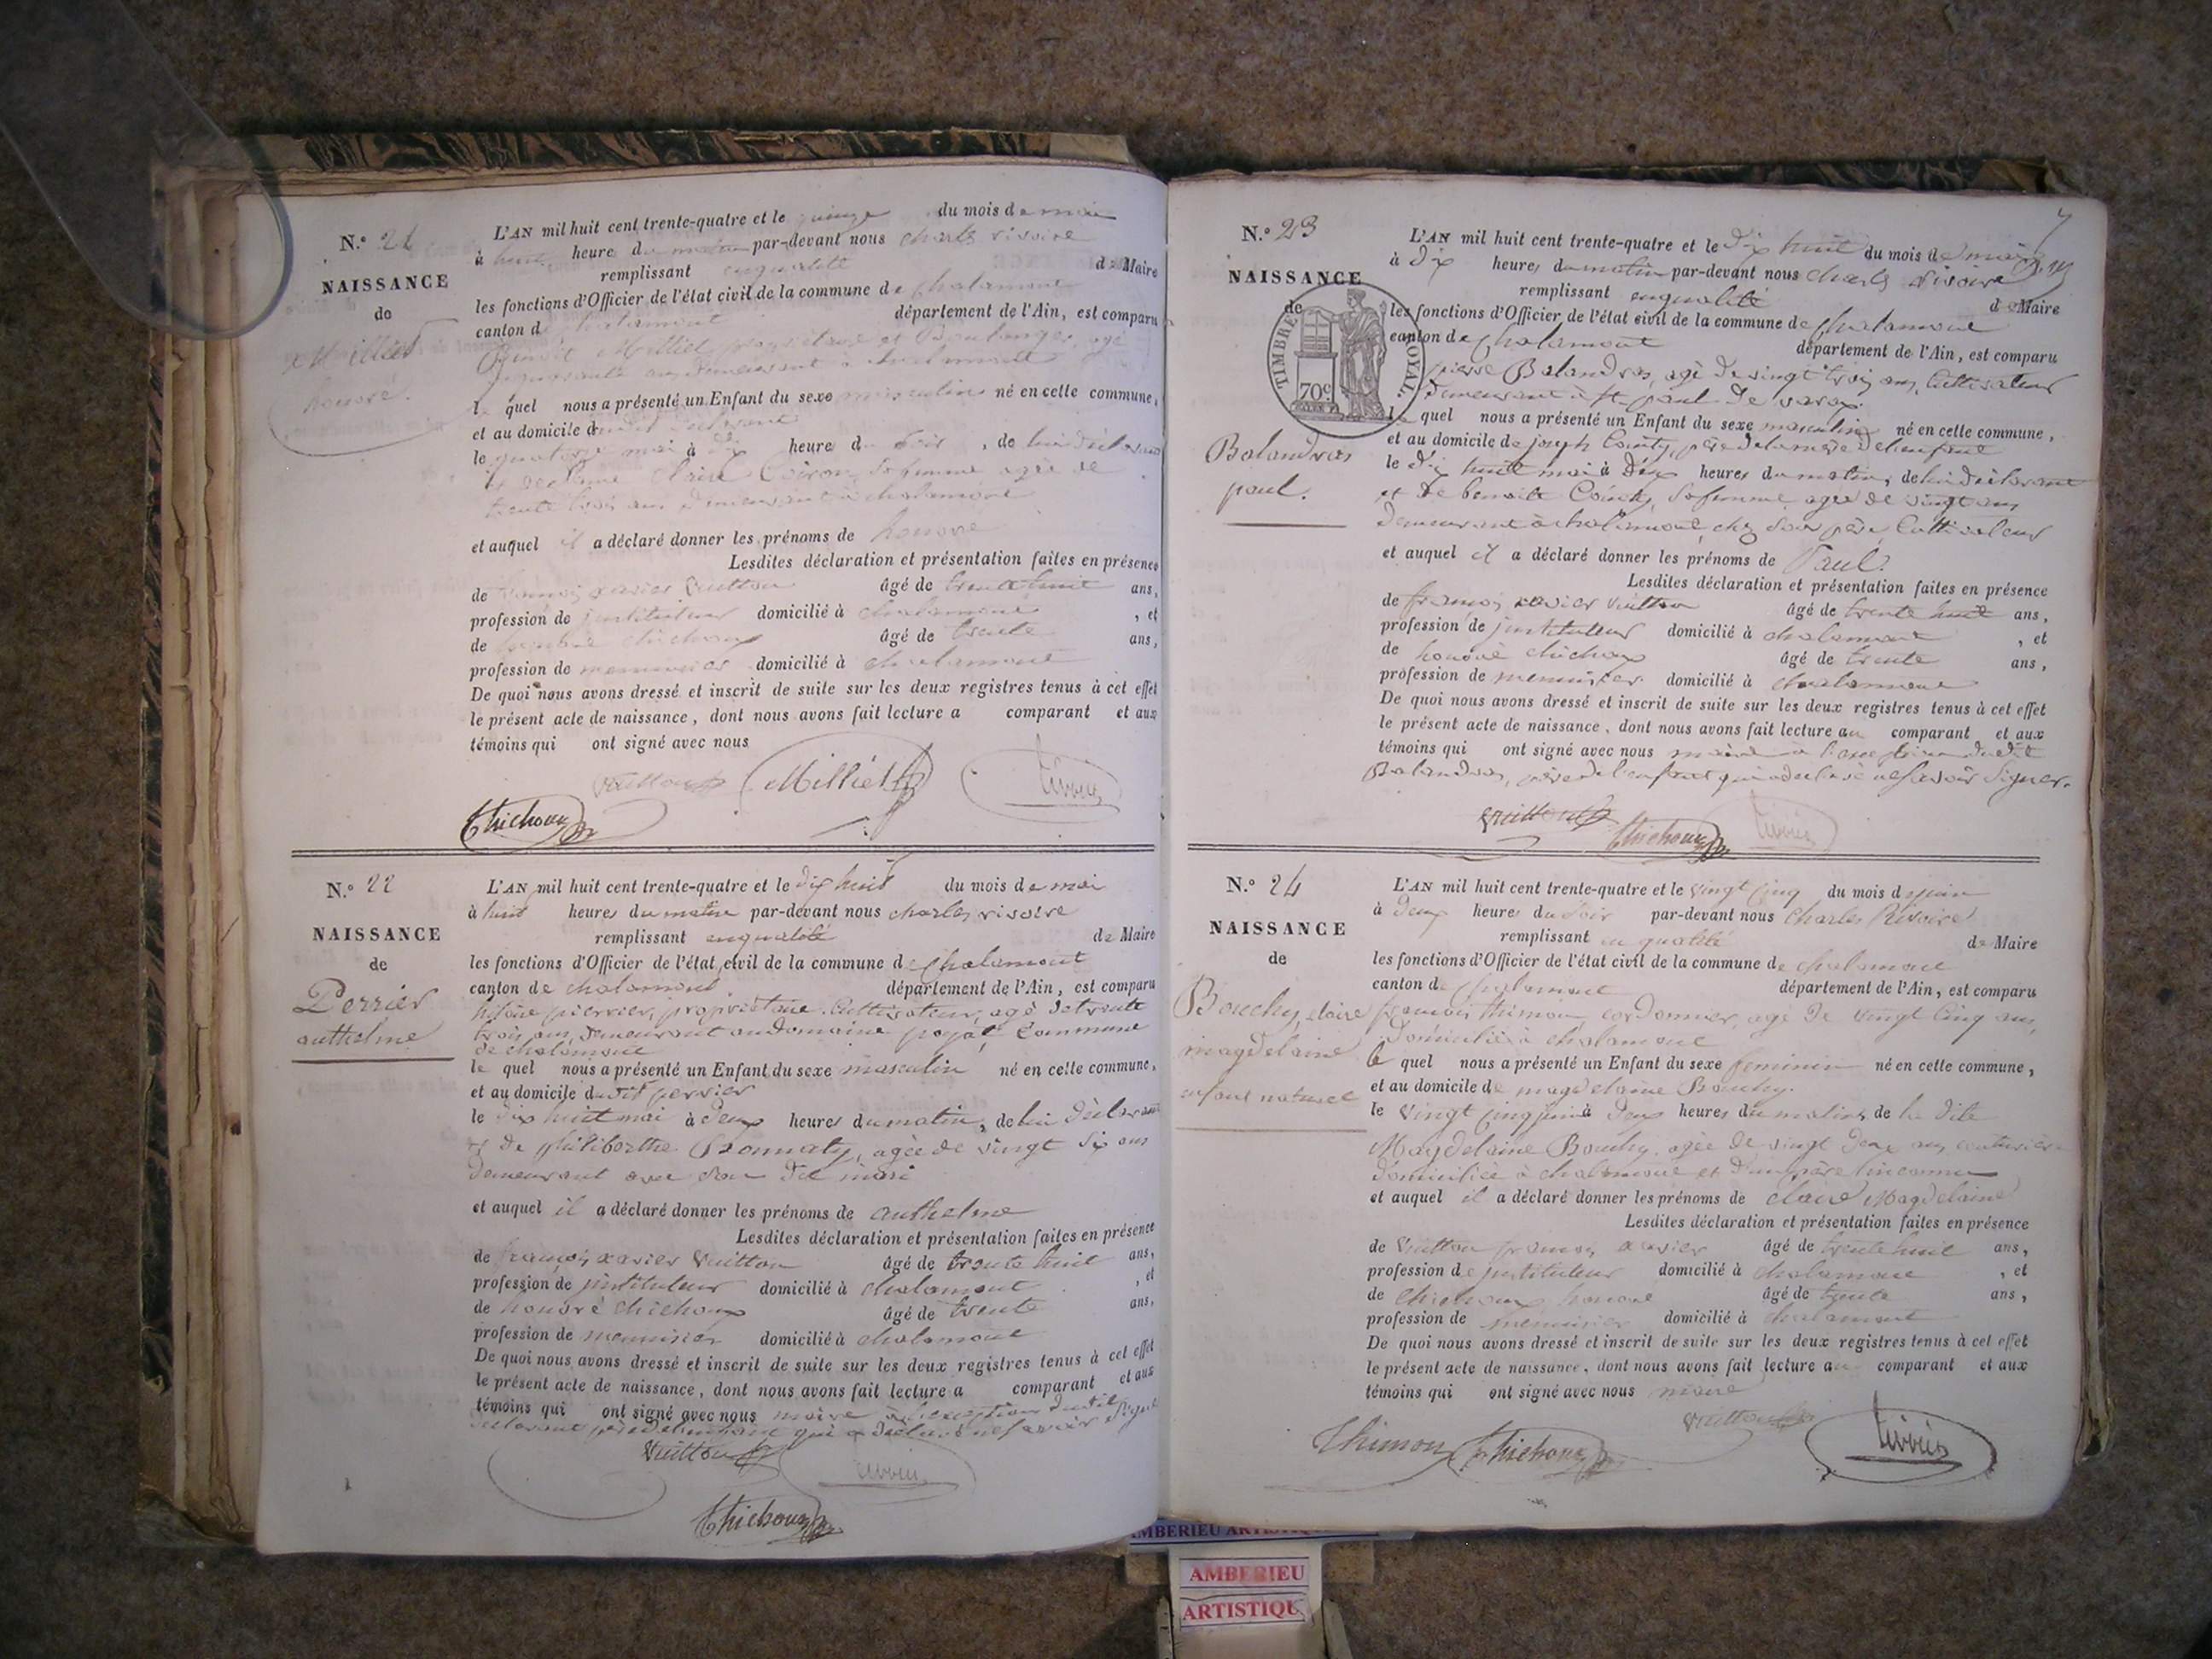 N.° 21
NAISSANCE
de
Milliet
honoré.
L'AN mil huit cent trente-quatre et le quinze du mois de mai
à huit heure du matin par-devant nous charles rivoire
remplissant enqualité de Maire
les fonctions d'Officier de l'état civil de la commune de chalamont
canton de chalamont département de l'Ain, est comparu
Benoit Milliet, propriétaire et Boulanger, agé
demeurant à chalamont
le quel nous a présenté un Enfant du sexe masculin né en cette commune,
et au domicile dudit déclarant
le quatorze mai à dix heure du soir, de lui déclarant
et de dame Claire sa femme agée de
trente trois ans demeurant à chalamont
et auquel il a déclaré donner les prénoms de honoré
Lesdites déclaration et présentation faites en présence
de françois xavier Vuitton âgé de trente huit ans,
profession de instituteur domicilié à chalamont, et
de honoré chichoux âgé de trente ans,
profession de menuisier domicilié à chalamont
De quoi nous avons dressé et inscrit de suite sur les deux registres tenus à cet effet
le présent acte de naissance, dont nous avons fait lecture a comparant et aux
témoins qui ont signé avec nous
Vuitton Milliet rivoire
Chichoux
N.° 22
NAISSANCE
de
Perrier
anthelme
L'AN mil huit cent trente-quatre et le dix huit du mois de mai
à huit heures du matin par-devant nous charles rivoire
remplissant enqualité de Maire
les fonctions d'Officier de l'état civil de la commune de chalamont
canton de chalamont département de l'Ain, est comparu
pierrier, propriétaire Cultivateur, agé de trente
trois ans, demeurant au domaine Commune
de chalamont
le quel nous a présenté un Enfant du sexe masculin né en cette commune,
et au domicile dudit perrier
le dix huit mai à deux heures du matin, de lui déclarant
et de philiberthe agée de vingt six ans
demeurant avec son dit mari
et auquel il a déclaré donner les prénoms de anthelme
Lesdites déclaration et présentation faites en présence
de françois xavier Vuitton âgé de trente huit ans,
profession de instituteur domicilié à chalamont, et
de honoré chichoux âgé de trente ans,
profession de menuisier domicilié à chalamont
De quoi nous avons dressé et inscrit de suite sur les deux registres tenus à cet effet
le présent acte de naissance, dont nous avons fait lecture a comparant et aux
témoins qui ont signé avec nous maire à l'exception dudit
déclarant père de l'enfant qui a déclaré ne savoir signer
Vuitton rivoire
Chichoux
7
N.° 23
NAISSANCE
de
TIMBRE ROYAL.
70c
Balandras
paul.
L'AN mil huit cent trente-quatre et le dix huit du mois de mai
à dix heures du matin par-devant nous charles rivoire
remplissant enqualité de Maire
les fonctions d'Officier de l'état civil de la commune de chalamont
canton de chalamont département de l'Ain, est comparu
pierre Balandras, agé de vingt trois ans, Cultivateur
demeurant à st paul de varax.
le quel nous a présenté un Enfant du sexe masculin né en cette commune,
et au domicile de joseph Cointy, père de la mère de l'enfant
le dix huit mai à deux heures du matin, de lui déclarant
et de benoite Cointy, sa femme agée de vingt ans
demeurant à chalamont, chez son père, Cultivateur
et auquel il a déclaré donner les prénoms de Paul.
Lesdites déclaration et présentation faites en présence
de françois xavier vuitton âgé de trente huit ans,
profession de instituteur domicilié à chalamont, et
de honoré chichoux âgé de trente ans,
profession de menuisier domicilié à chalamont
De quoi nous avons dressé et inscrit de suite sur les deux registres tenus à cet effet
le présent acte de naissance, dont nous avons fait lecture au comparant et aux
témoins qui ont signé avec nous maire à l'exception dudit
Balandras, père de l'enfant qui a déclaré ne savoir signer.
Vuitton Chichoux rivoire
N.° 24
NAISSANCE
de
Bouchy, claire
magdelaine
enfant naturel
L'AN mil huit cent trente-quatre et le vingt cinq du mois de juin
à deux heures du soir par-devant nous Charles Rivoire
remplissant en qualité de Maire
les fonctions d'Officier de l'état civil de la commune de chalamont
canton de chalamont département de l'Ain, est comparu
françois thimon, cordonnier, agé de vingt cinq ans,
domicilié à chalamont
le quel nous a présenté un Enfant du sexe feminin né en cette commune,
et au domicile de magdelaine Bouchy.
le vingt cinq juin à deux heures du matin, de la dite
Magdelaine Bouchy, agée de vingt deux ans couturière
domiciliée à chalamont et d'un père inconnu
et auquel il a déclaré donner les prénoms de claire Magdelaine
Lesdites déclaration et présentation faites en présence
de Vuitton françois xavier âgé de trente huit ans,
profession de instituteur domicilié à chalamont, et
de Chichoux honoré âgé de trente ans,
profession de menuisier domicilié à chalamont
De quoi nous avons dressé et inscrit de suite sur les deux registres tenus à cet effet
le présent acte de naissance, dont nous avons fait lecture au comparant et aux
témoins qui ont signé avec nous maire
Vuitton
Thimon Chichoux rivoire
AMBERIEU ARTISTIQUE
AMBERIEU
ARTISTIQU